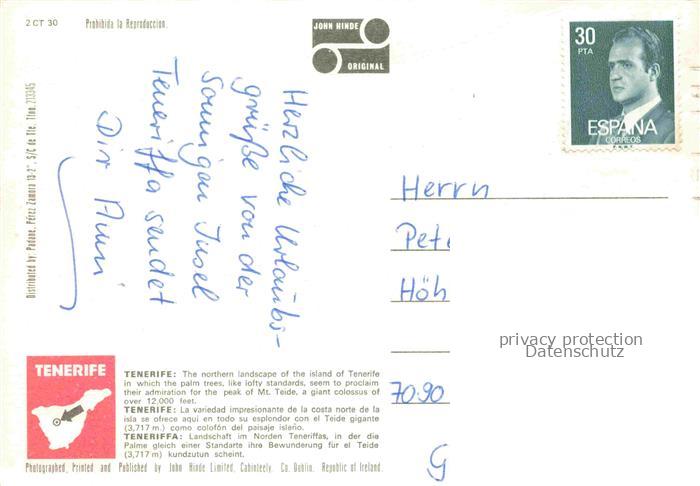 2 CT 30
Prohibida la Reproduccion.
JOHN HINDE
ORIGINAL
30
PTA
ESPAÑA
CORREOS
Distributed by: Padane, Pérez Zamora 13-2°. S/C de Tfe. Tfno. 213345
Herzliche Urlaubs-
grüße von der
sonnigen Insel
Teneriffa sendet
Dir
Herrn
Pet
Höh
7090
G
privacy protection
Datenschutz
TENERIFE
TENERIFE: The northern landscape of the island of Tenerife
in which the palm trees, like lofty standards, seem to proclaim
their admiration for the peak of Mt. Teide, a giant colossus of
over 12,000 feet.
TENERIFE: La variedad impresionante de la costa norte de la
isla se ofrece aqui en todo su esplendor con el Teide gigante
(3,717 m.) como colofón del paisaje isleño.
TENERIFFA: Landschaft im Norden Teneriffas, in der die
Palme gleich einer Standarte ihre Bewunderung für el Teide
(3,717 m) kundzutun scheint.
Photographed, Printed and Published by John Hinde Limited, Cabinteely, Co. Dublin, Republic of Ireland.